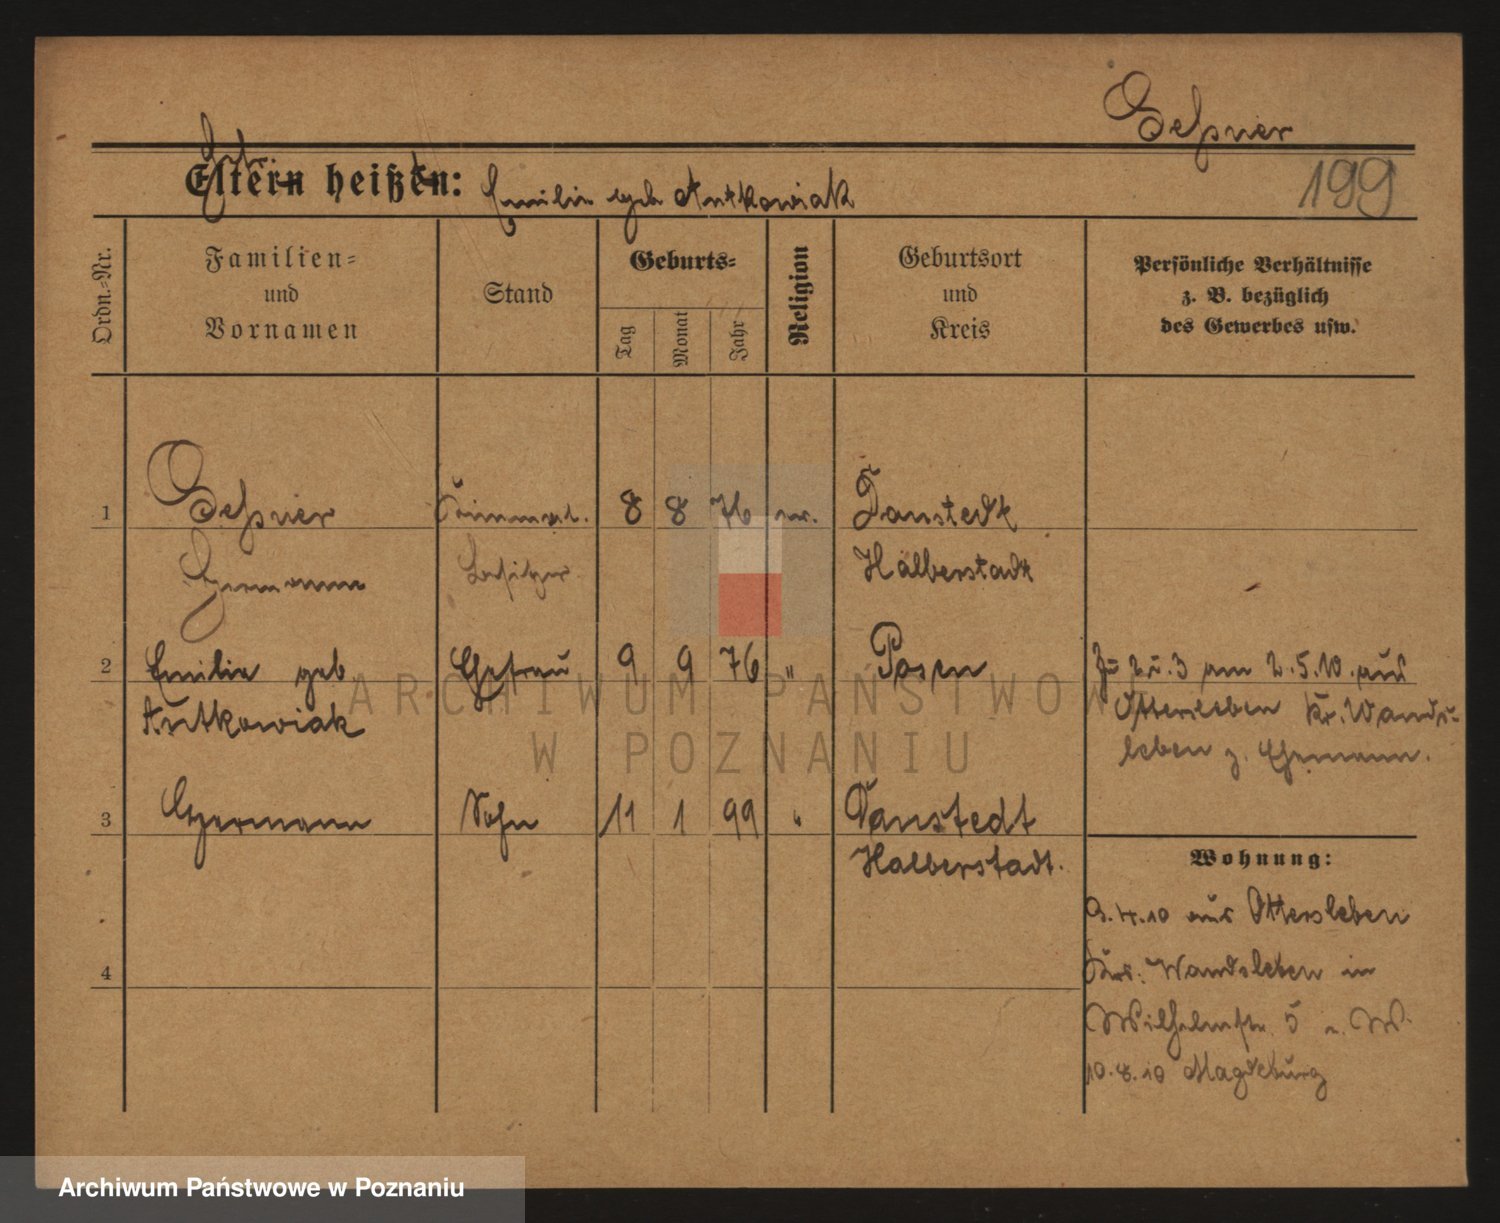 Geßner
Eltern heißen: Emilie geb Antkowiak
199
Ordn.=Nr.
Familien=
und
Vornamen
Stand
Geburts=
Tag
Monat
Jahr
Religion
Geburtsort
und
Kreis
Persönliche Verhältnisse
z. B. bezüglich
des Gewerbes usw.
1 Geßner 8 8 76 Danstedt
Hermann Besitzer Halberstadt
2 Emilie geb Ehefrau 9 9 76 " Posen
Antkowiak
Zu 3 am 2.5.10. aus
Ottersleben Kr. Wands-
leben z. Ehemann.
3 Hermann Sohn 11 1 99 " Danstedt
Halberstadt.
4
Wohnung:
9.4.10 aus Ottersleben
Wandsleben in
Wilhelmstr. 5
10.8.10 Magdeburg
ARCHIWUM PAŃSTWOW
W POZNANIU
Archiwum Państwowe w Poznaniu